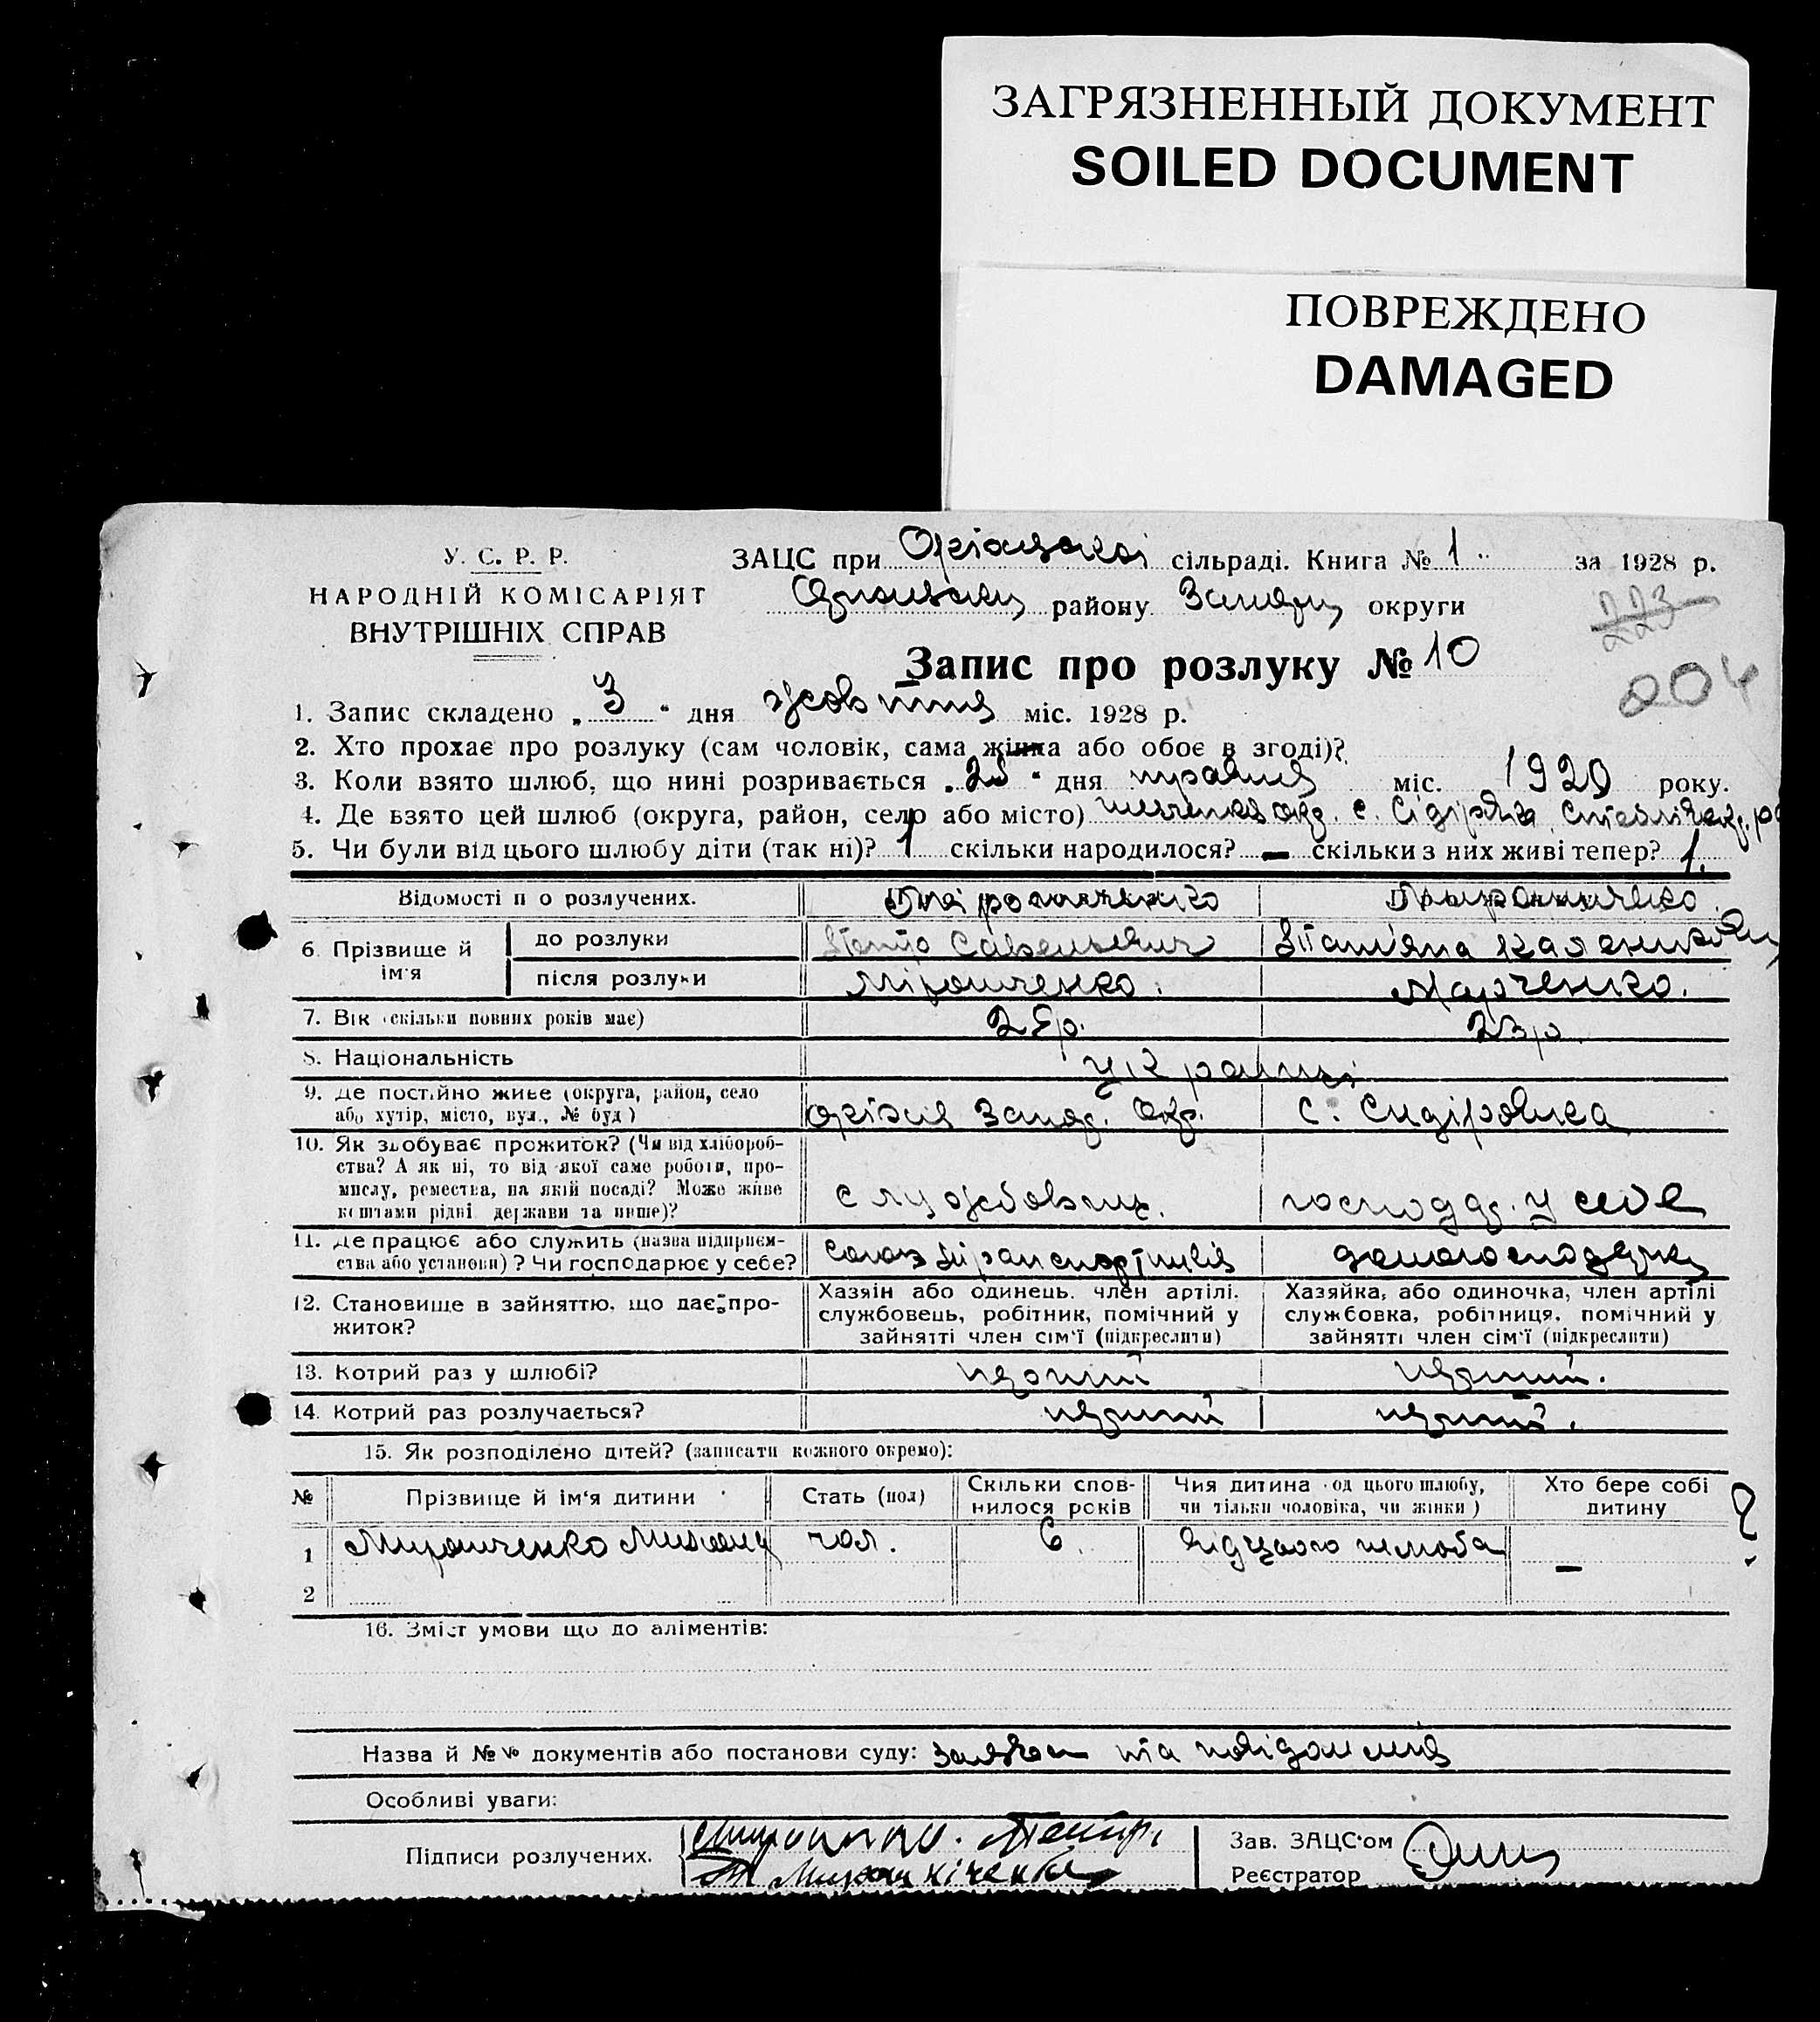 ЗАГРЯЗНЕННЫЙ ДОКУМЕНТ
SOILED DOCUMENT
ПОВРЕЖДЕНО
DAMAGED
У. С. Р. Р.
НАРОДНІЙ КОМІСАРІЯТ
ВНУТРІШНІХ СПРАВ
ЗАЦС при сільраді. Книга № 1 за 1928 р.
району округи
223
204
Запис про розлуку № 10
1. Запис складено „ 3 “ дня жовтня міс. 1928 р.
2. Хто прохає про розлуку (сам чоловік, сама жінка або обоє в згоді)?
3. Коли взято шлюб, що нині розривається „ “ дня травня міс. 1920 року.
4. Де взято цей шлюб (округа, район, село або місто) с.
5. Чи були від цього шлюбу діти (так ні)? 1 скільки народилося? — скільки з них живі тепер? 1.
Відомості п о розлучених.
6. Прізвище й ім'я
до розлуки Петро Савельевич Татіяна
після розлуки Мірошченко. Марченко.
7. Вік (скільки повних років має) 28р. 23р.
8. Національність
9. Де постійно живе (округа, район, село або хутір, місто, вул., № буд) с. Сидіровка
10. Як здобуває прожиток? (Чи від хлібороб-
ства? А як ні, то від якої саме роботи, про-
мислу, ремества, на якій посаді? Може живе
коштами рідні держави та инше)?
службовець. господ. у себе
11. Де працює або служить (назва підприєм-
ства або установи)? Чи господарює у себе?
Союз транспортників
12. Становище в зайняттю, що дає про-
житок?
Хазяїн або одинець, член артілі,
службовець, робітник, помічний у
зайнятті член сім'ї (підкреслити)
Хазяйка, або одиночка, член артілі
службовка, робітниця, помічний у
зайнятті член сім'ї (підкреслити)
13. Котрий раз у шлюбі? перший перший.
14. Котрий раз розлучається? перший перший.
15. Як розподілено дітей? (записати кожного окремо):
№ Прізвище й ім'я дитини Стать (пол) Скільки спов-нилося років Чия дитина (од цього шлюбу, чи тільки чоловіка, чи жінки) Хто бере собі дитину ?
1 Мирошченко чол. 6. від цього шлюба —
2
16. Зміст умови що до аліментів:
Назва й №№ документів або постанови суду: та повідомлення
Особливі уваги:
Підписи розлучених.
Зав. ЗАЦС'ом
Реєстратор